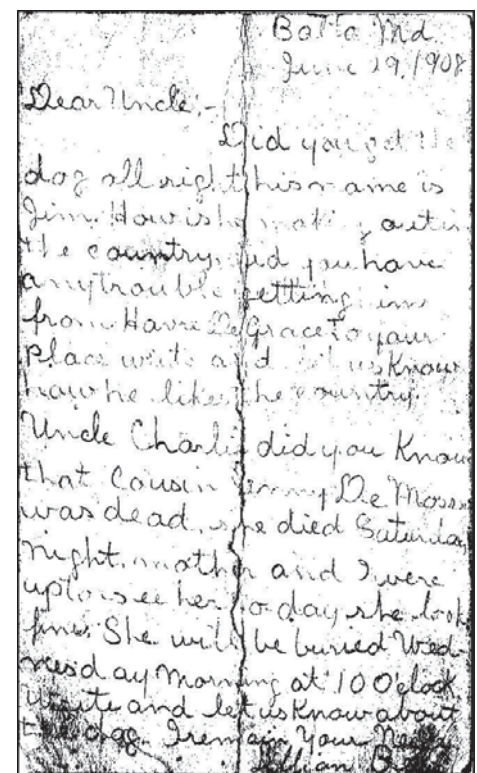 Balto Md.
June 29, 1908
Dear Uncle:-
Did you get the
dog all right his name is
Jim. How is he making out in
the country. did you have
any trouble getting him
from Havre De Grace to your
place write and let us Know
how he likes the country.
Uncle Charlie did you Know
that Cousin Jenny De Moss
was dead, she died Saturday
night. mother and I were
up to see her to day she look
fine. She will be buried Wed-
nesday morning at 10 O'clock
Write and let us Know about
the dog. I remain Your
Lillian